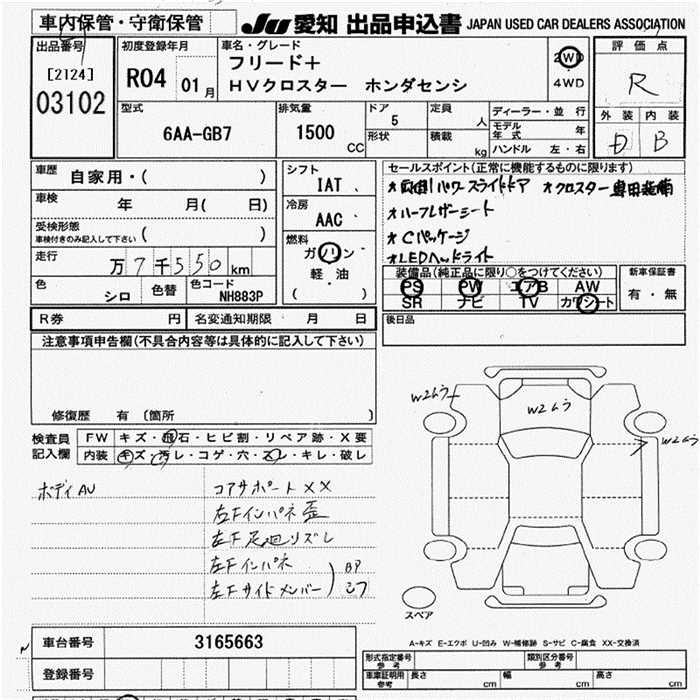 車内保管・守衛保管
JU 愛知 出品申込書 JAPAN USED CAR DEALERS ASSOCIATION
出品番号
[2124]
03102
初度登録年月
R04 01月
車名・グレード
フリード＋
HVクロスター ホンダセンシ
2WD
4WD
評価点
R
外装 内装
D B
型式
6AA-GB7
排気量
1500 CC
ドア
5
形状
定員
人
積載
kg
ディーラー・並行
モデル年式 年
ハンドル 左・右
車歴
自家用・( )
車検
年 月( 日)
受検形態
車検付きのみ記入して下さい ( )
走行
万7千550km
色
シロ
色替
色コード
NH883P
シフト
IAT
冷房
AAC
燃料
ガソリン
軽・油
( )
セールスポイント(正常に機能するものに限ります)
★両側パワースライドドア ★クロスター専用装備
★ハーフレザーシート
★Cパッケージ
★LEDヘッドライト
装備品(純正品に限り○をつけてください)
PS PW エアB AW
SR ナビ TV カワシート
新車保証書
有・無
R券 円
名変通知期限 月 日
後日品
注意事項申告欄(不具合内容等は具体的に記入して下さい)
修復歴 有 (箇所 )
検査員記入欄
FW キズ・飛石・ヒビ割・リペア跡・X要
内装 キズ・汚レ・コゲ・穴・スレ・キレ・破レ
ボディAU
コアサポートXX
右Fインパネ歪
左F足廻リズレ
左Fインパネ
左Fサイドメンバー
BP
W2ムラ
W2ムラ
W2ムラ
スペア
車台番号 3165663
登録番号
A-キズ E-エクボ U-凹み W-補修跡 S-サビ C-腐食 XX-交換済
形式指定番号 参考
類別区分番号 参考
車両証明用 参考
長さ cm 幅 cm 高さ cm